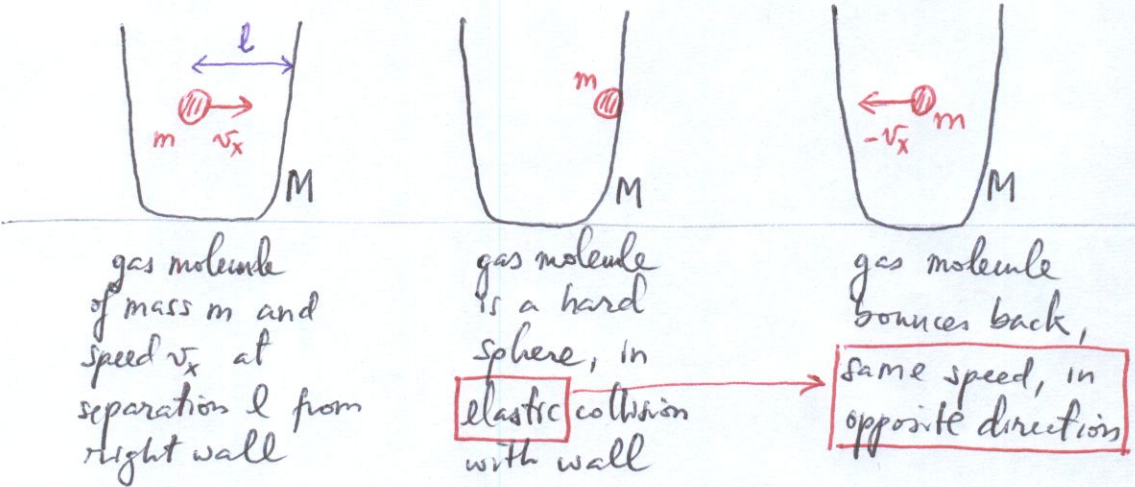 l
m
vx
M
m
M
-vx
m
M
gas molecule
of mass m and
speed vx at
separation l from
right wall
gas molecule
is a hard
sphere, in
elastic collision
with wall
gas molecule
bounces back,
same speed, in
opposite direction